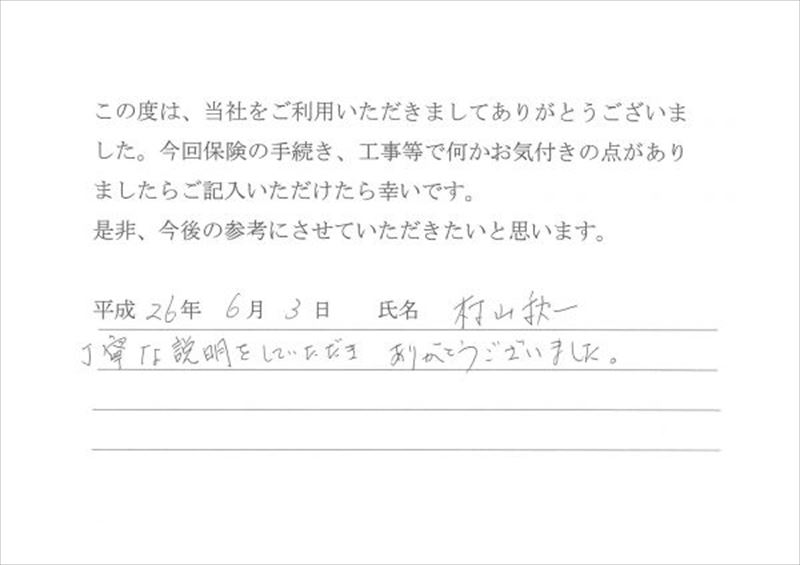 この度は、当社をご利用いただきましてありがとうございま
した。今回保険の手続き、工事等で何かお気付きの点があり
ましたらご記入いただけたら幸いです。
是非、今後の参考にさせていただきたいと思います。
平成 26年 6月 3日 氏名 村山秋一
丁寧な説明をしていただき ありがとうございました。